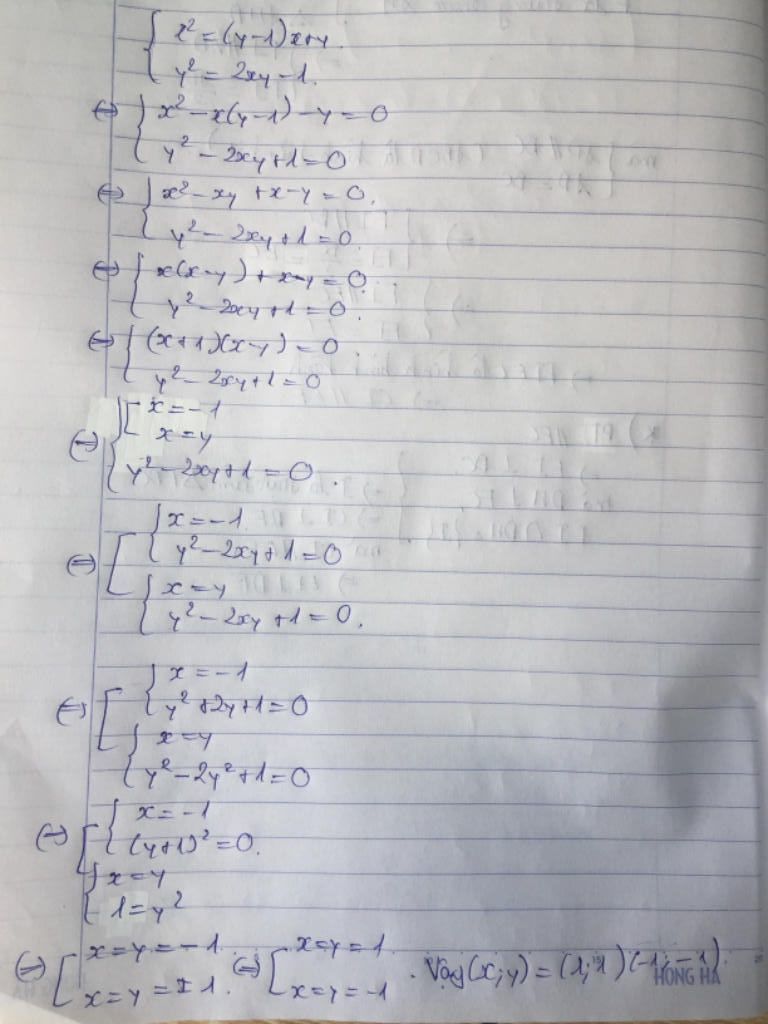 { x² = (y-1)x+y.
y² = 2xy-1.
⇔ { x² - x(y-1) - y = 0
y² - 2xy+1 = 0
⇔ { x² - xy + x - y = 0.
y² - 2xy+1 = 0.
⇔ { x(x-y) + x-y = 0.
y² - 2xy+1 = 0.
⇔ { (x+1)(x-y) = 0.
y² - 2xy+1 = 0
⇔ { [ x = -1
x = y
y² - 2xy+1 = 0.
⇔ [ { x = -1
y² - 2xy+1 = 0
{ x = y
y² - 2xy+1 = 0.
⇔ [ { x = -1
y² + 2y+1 = 0
{ x = y
y² - 2y² + 1 = 0
⇔ [ { x = -1
(y+1)² = 0.
{ x = y
1 = y²
⇔ [ x = y = -1. ⇔ [ x = y = 1 . Vậy (x;y) = (1;1) (-1;-1).
x = y = ±1. x = y = -1
HONG HA